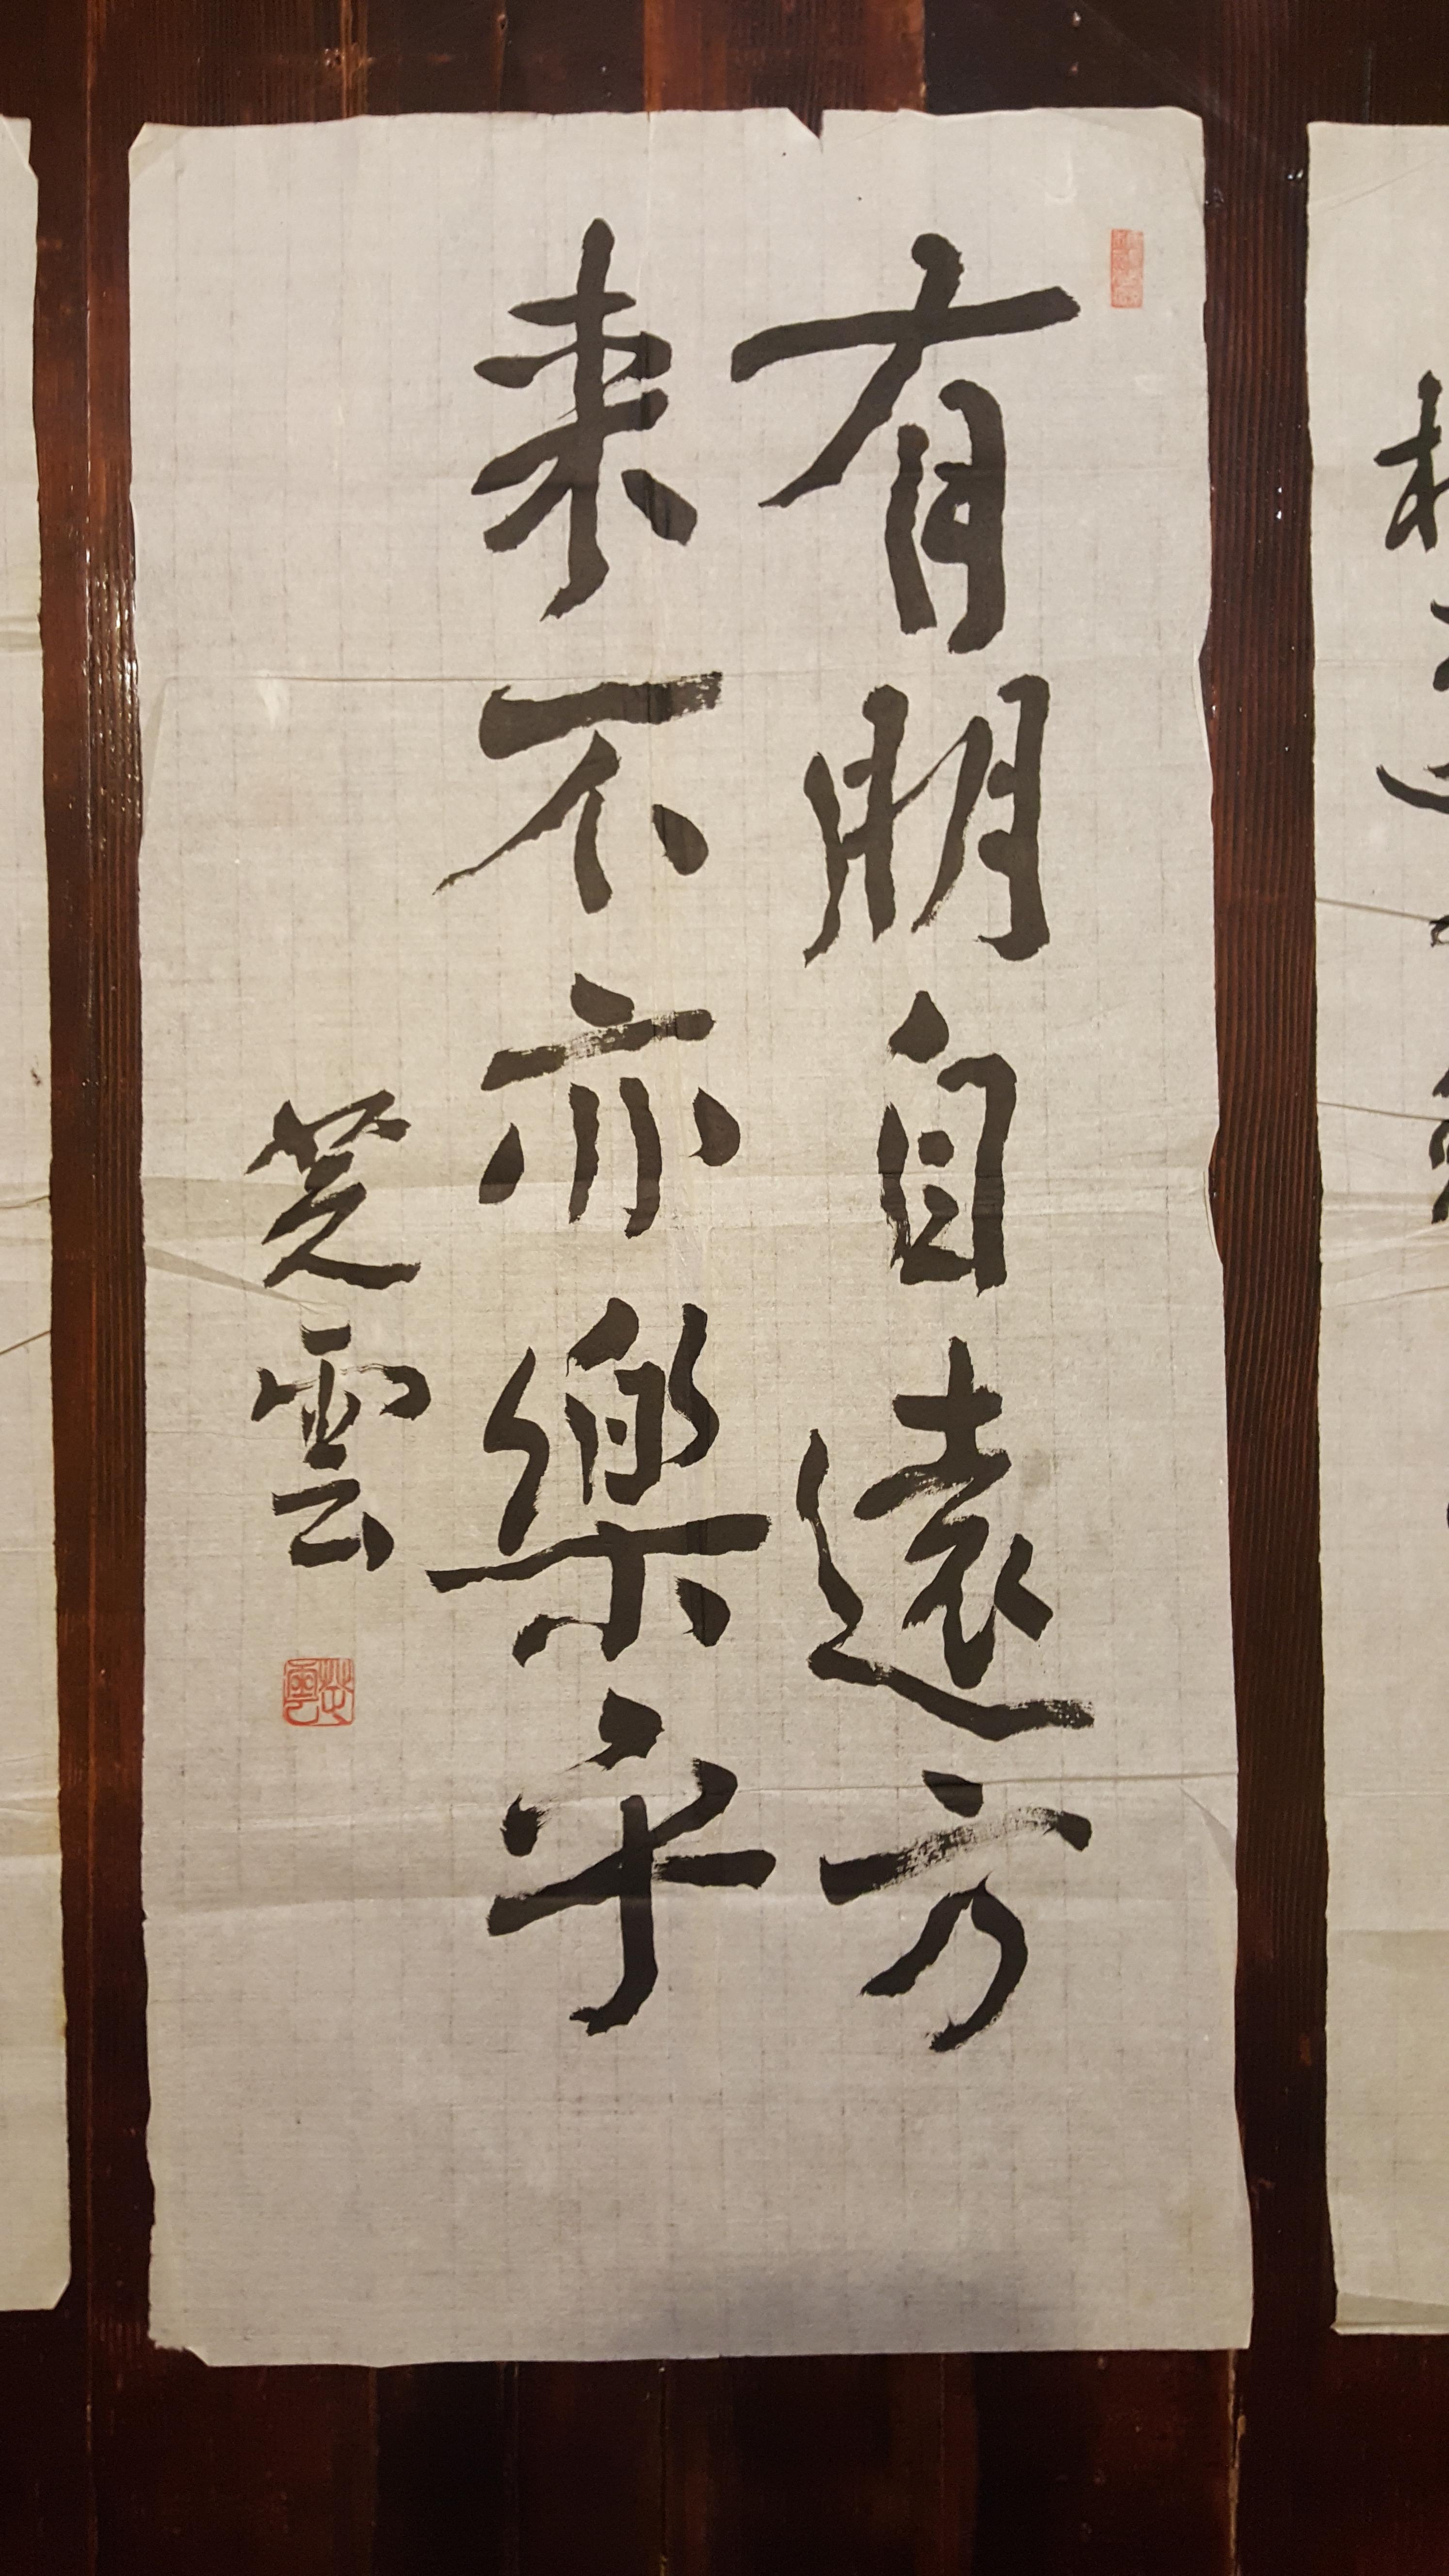 有朋自遠方
来不亦樂乎
芝雲